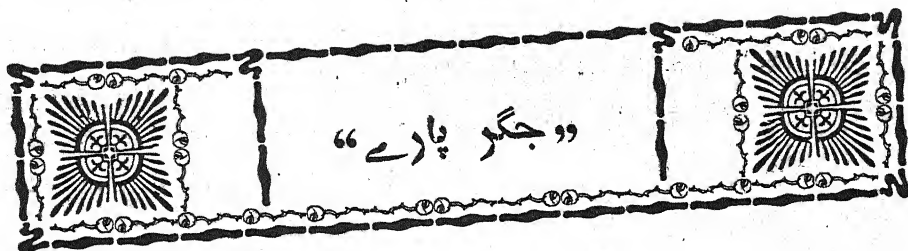 “جگر پارے”